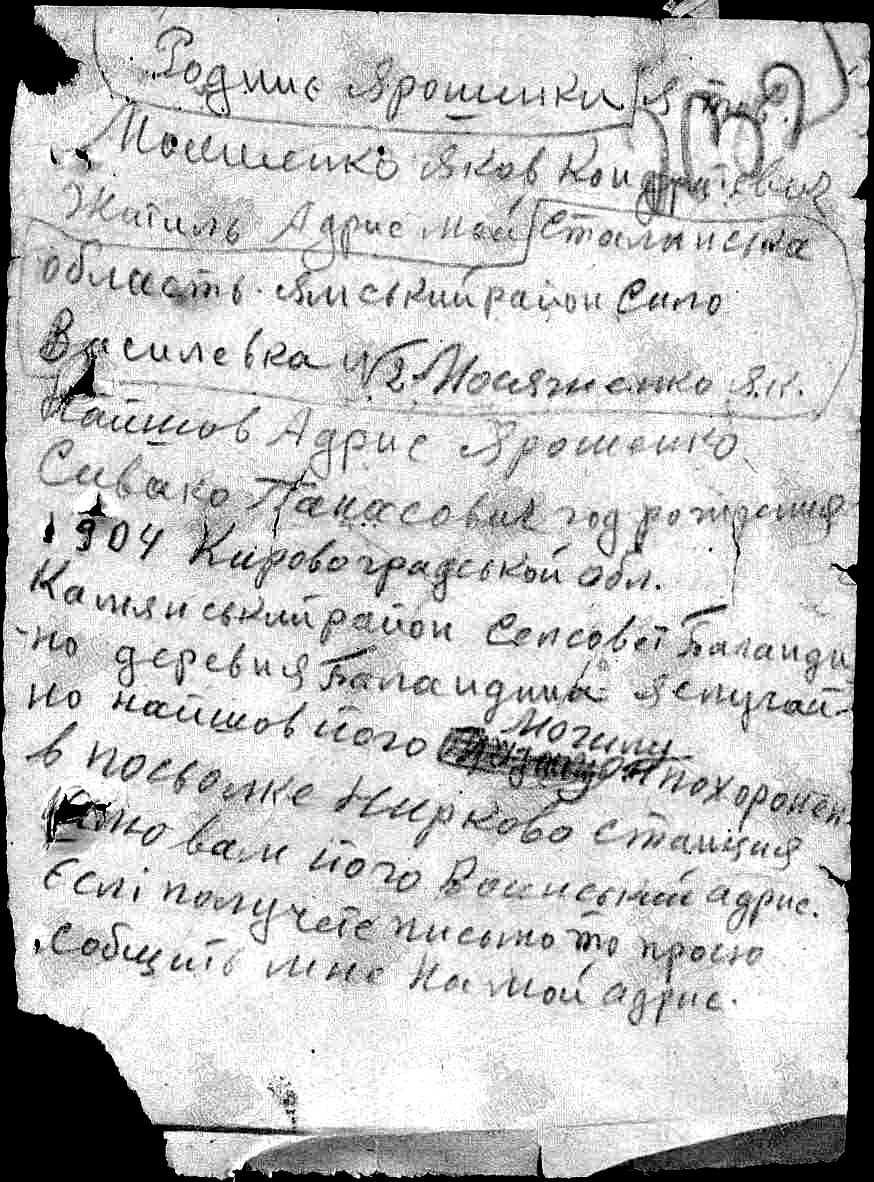 Родниє Ярошинки я
Яков Кондратєвич
Житиль Адрис мой Сталинська
область. Ямський район Сило
Василевка №2 Мосяженко Я.К.
Найшов Адрис Ярошенко
Сивако Панасович год рождения
1904 Кировоградськой обл.
Камянський район Сепсовет Баланди
-но деревня Баландина я случай-
но найшов його могилу похоронен
в посьолке Нирково станция
вам його Воинський адрис.
Єслі получете письмо то прошу
собщить мне на мой адрис.